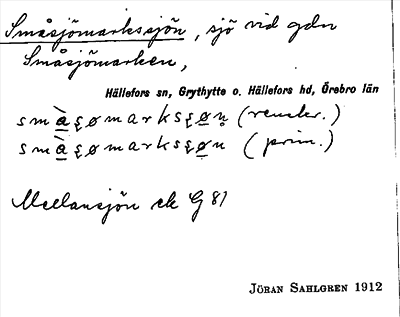 Småsjömarkssjön, sjö vid gdn
Småsjömarken,
Hällefors sn, Grythytte o. Hällefors hd, Örebro län
smàʂømarksʂøṇ (renskr.)
smàʂømarksʂøn (prim.)
Mellansjön ek G 81
JÖRAN SAHLGREN 1912